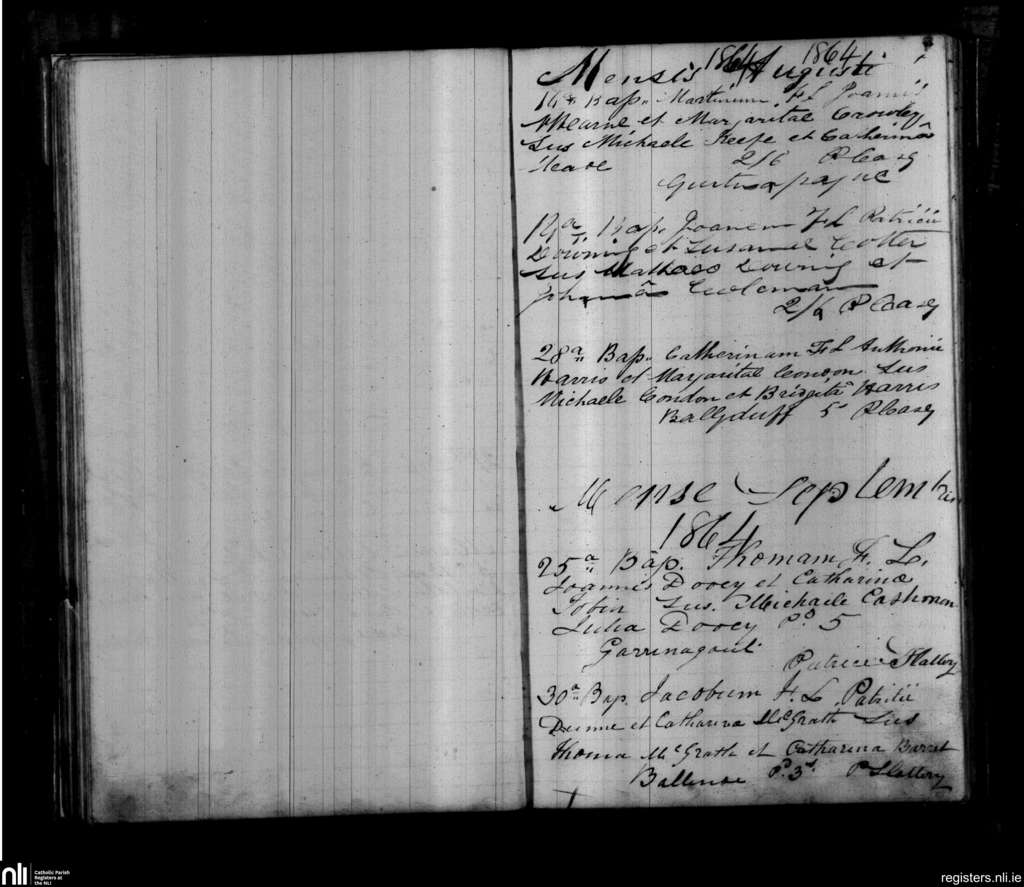 1864 1864
Mensis Augusti
14a Bap. Martinum F L Joannis
Ahearne et Margaritae Crowley
Sus Michaele Keefe et Catherinâ
2/6 P Casey
12a Bap. Joanem F L Patricii
Downing et Susanae Cotter
Sus Matheo Downing et
Johannâ Coleman
2/6 P Casey
28a Bap. Catherinam F L Anthonii
Harris et Margaritae Condon Sus
Michaele Condon et Brigitâ Harris
Ballyduff 5s P Casey
Mense Septembris
1864
25a Bap. Thomam F. L.
Joannis Dooey et Catharinae
Tobin Sus. Michaele Cashman
Julia Dooey Pd 5
Garrinagoul
Patrice Slattery
30a Bap. Jacobum F. L. Patritii
Dunne et Catharina McGrath Sus
Thoma McGrath et Catharina Barret
Pd. 3s. P Slattery
nli
Catholic Parish
Registers at
the NLI
registers.nli.ie